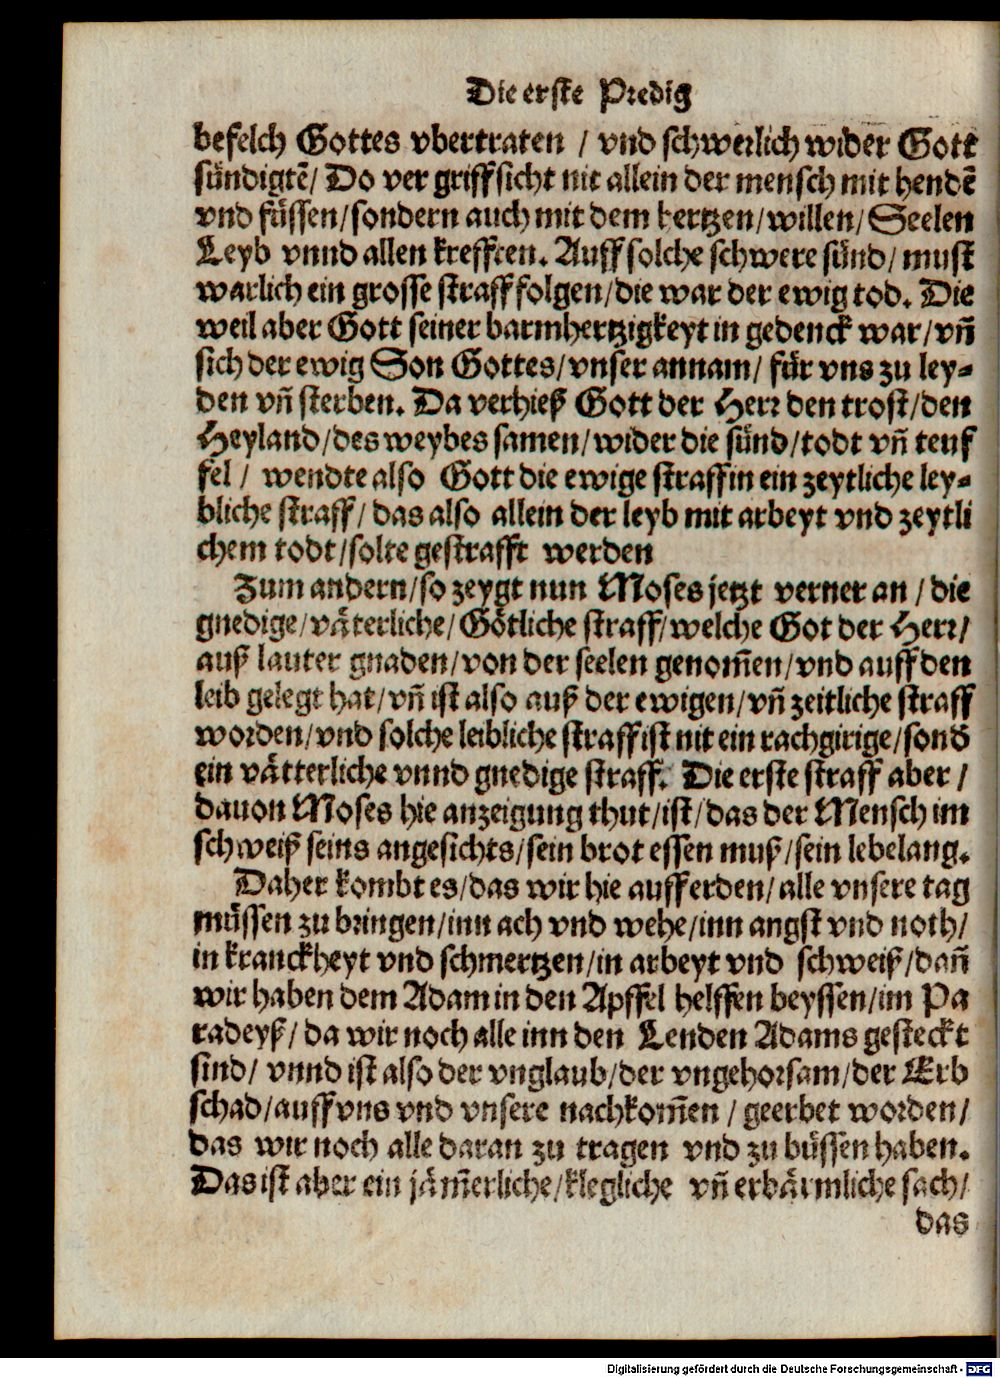 Die erste Predig
befelch Gottes vbertraten / vnd schwerlich wider Gott
sündigtē/ Do ver griff sicht nit allein der mensch mit hendē
vnd füssen/sondern auch mit dem hertzen/willen/Seelen
Leyb vnnd allen krefften. Auff solche schwere sünd/ must
warlich ein grosse straff folgen/die war der ewig tod. Die
weil aber Gott seiner barmhertzigkeyt in gedenck war/vn̄
sich der ewig Son Gottes/vnser annam/ für vns zu ley-
den vn̄ sterben. Da verhieß Gott der Herr den trost/den
Heyland/des weybes samen/wider die sünd/todt vn̄ teuf
fel / wendte also Gott die ewige straff in ein zeytliche ley-
bliche straff/ das also allein der leyb mit arbeyt vnd zeytli
chem todt/solte gestrafft werden
Zum andern/so zeygt nun Moses jetzt verner an / die
gnedige/väterliche/Götliche straff/welche Got der Herr/
auß lauter gnaden/von der seelen genom̄en/vnd auff den
leib gelegt hat/vn̄ ist also auß der ewigen/vn̄ zeitliche straff
worden/vnd solche leibliche straff ist nit ein rachgirige/sond̄
ein vätterliche vnnd gnedige straff. Die erste straff aber /
dauon Moses hie anzeigung thut/ist/das der Mensch im
schweiß seins angesichts/sein brot essen muß/sein lebelang.
Daher kombt es/das wir hie auff erden/alle vnsere tag
müssen zu bringen/inn ach vnd wehe/inn angst vnd noth/
in kranckheyt vnd schmertzen/in arbeyt vnd schweiß/dan̄
wir haben dem Adam in den Apffel helffen beyssen/im Pa
radeyß/ da wir noch alle inn den Lenden Adams gesteckt
sind/ vnnd ist also der vnglaub/der vngehorsam/der Erb
schad/auff vns vnd vnsere nachkom̄en / geerbet worden/
das wir noch alle daran zu tragen vnd zu büssen haben.
Das ist aber ein jäm̄erliche/klegliche vn̄ erbärmliche sach/
das
Digitalisierung gefördert durch die Deutsche Forschungsgemeinschaft - DFG